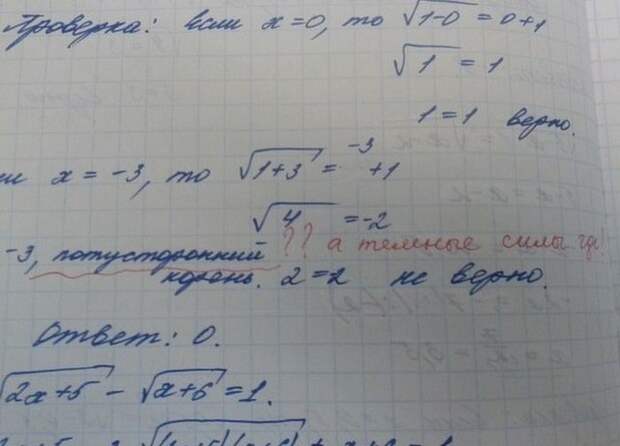 Проверка: Если x=0, то √1-0 = 0+1
√1 = 1
1=1 верно.
x = -3, то √1+3 = -3+1
√4 = -2
-3, потусторонний ?? а темные силы где!
корень. 2=2 не верно.
Ответ: 0.
√2x+5 - √x+6 = 1.